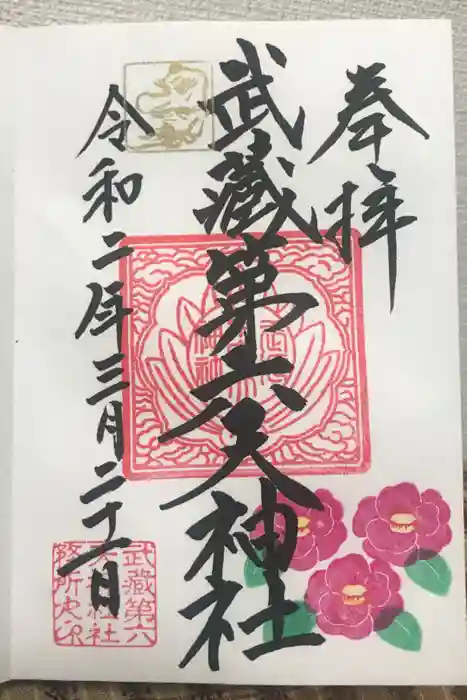 奉拝
武蔵第六天神社
令和二年三月二十一日
武蔵第六
天神社社
務所之印